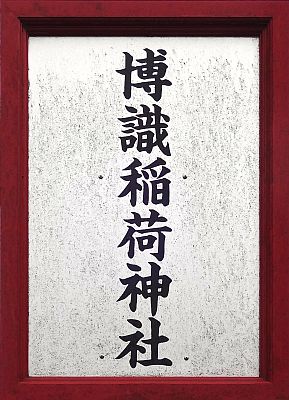 博識稲荷神社